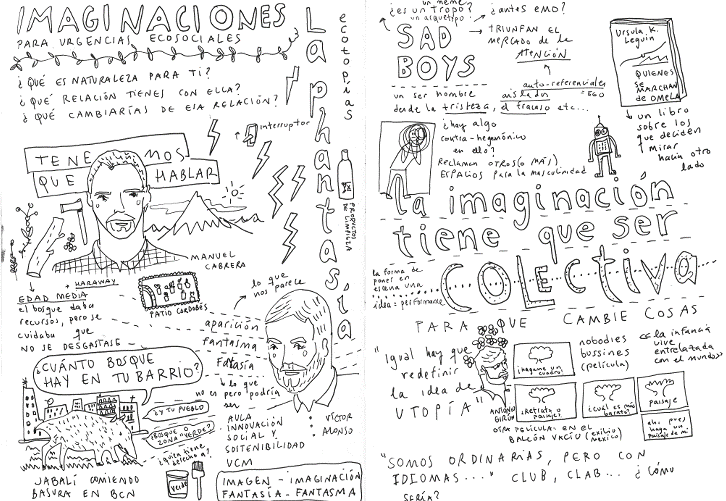 IMAGINACIONES
PARA URGENCIAS ECOSOCIALES
¿QUÉ ES NATURALEZA PARA TI?
¿QUÉ RELACIÓN TIENES CON ELLA?
¿QUÉ CAMBIARÍAS DE ESA RELACIÓN?
Laphantasía
ecotopías
interruptor
TENEMOS
QUE HABLAR
PRODUCTOS
DE LIMPIEZA
MANUEL
CABRERA
HARAWAY
EDAD MEDIA
el bosque daba
recursos, pero se
cuidaba que
NO SE DESGASTASE
PATIO CORDOBÉS
lo que
nos parece
aparición
fantasma
Fantasía
lo que
no es pero podría
ser
¿CUÁNTO BOSQUE
HAY EN TU BARRIO?
¿Y TU PUEBLO
¿BOSQUE O
ZONA "VERDE"?
JABALÍ COMIENDO
BASURA EN BCN
VERDE
AULA
INNOVACIÓN
SOCIAL Y
SOSTENIBILIDAD
UCM
VÍCTOR
ALONSO
IMAGEN - IMAGINACIÓN
FANTASÍA - FANTASMA
un meme?
¿es un Tropo?
un arquetipo?
¿antes EMO?
SAD
BOYS
TRIUNFAN EL
MERCADO DE LA
ATENCIÓN
auto-referenciales
aislados
EGO
un ser hombre
desde la tristeza, el fracaso etc...
¿hay algo
contra-hegemónico
en ello?
Reclamen OTROS (O MÁS)
ESPACIOS PARA LA masculinidad
Ursula K.
Leguin
QUIENES
SE
MARCHAN
DE OMELAS
un libro
sobre los
que deciden
mirar
hacia otro
lado
la imaginación
tiene que ser
COLECTIVA
la forma de
poner en
escena una
idea = performance
PARA QUE CAMBIE COSAS
"Igual hay que
redefinir
la idea de
UTOPÍA"
ANTONIO
nobodies
bussines
(película)
"la infancia
vive
entrelazada
con el mundo"
¡hagame un
cuadro!
¡Retrato o
paisaje!
¿cuál es más
barato?
Paisaje
ah, pues
haga un
paisaje de mi
OTRA PELICULA: EN EL
BALCÓN VACÍO (exilio
México)
"SOMOS ORDINARIAS, PERO CON
IDIOMAS..." CLUB, CLAB... ¿Cómo
SERÍA?